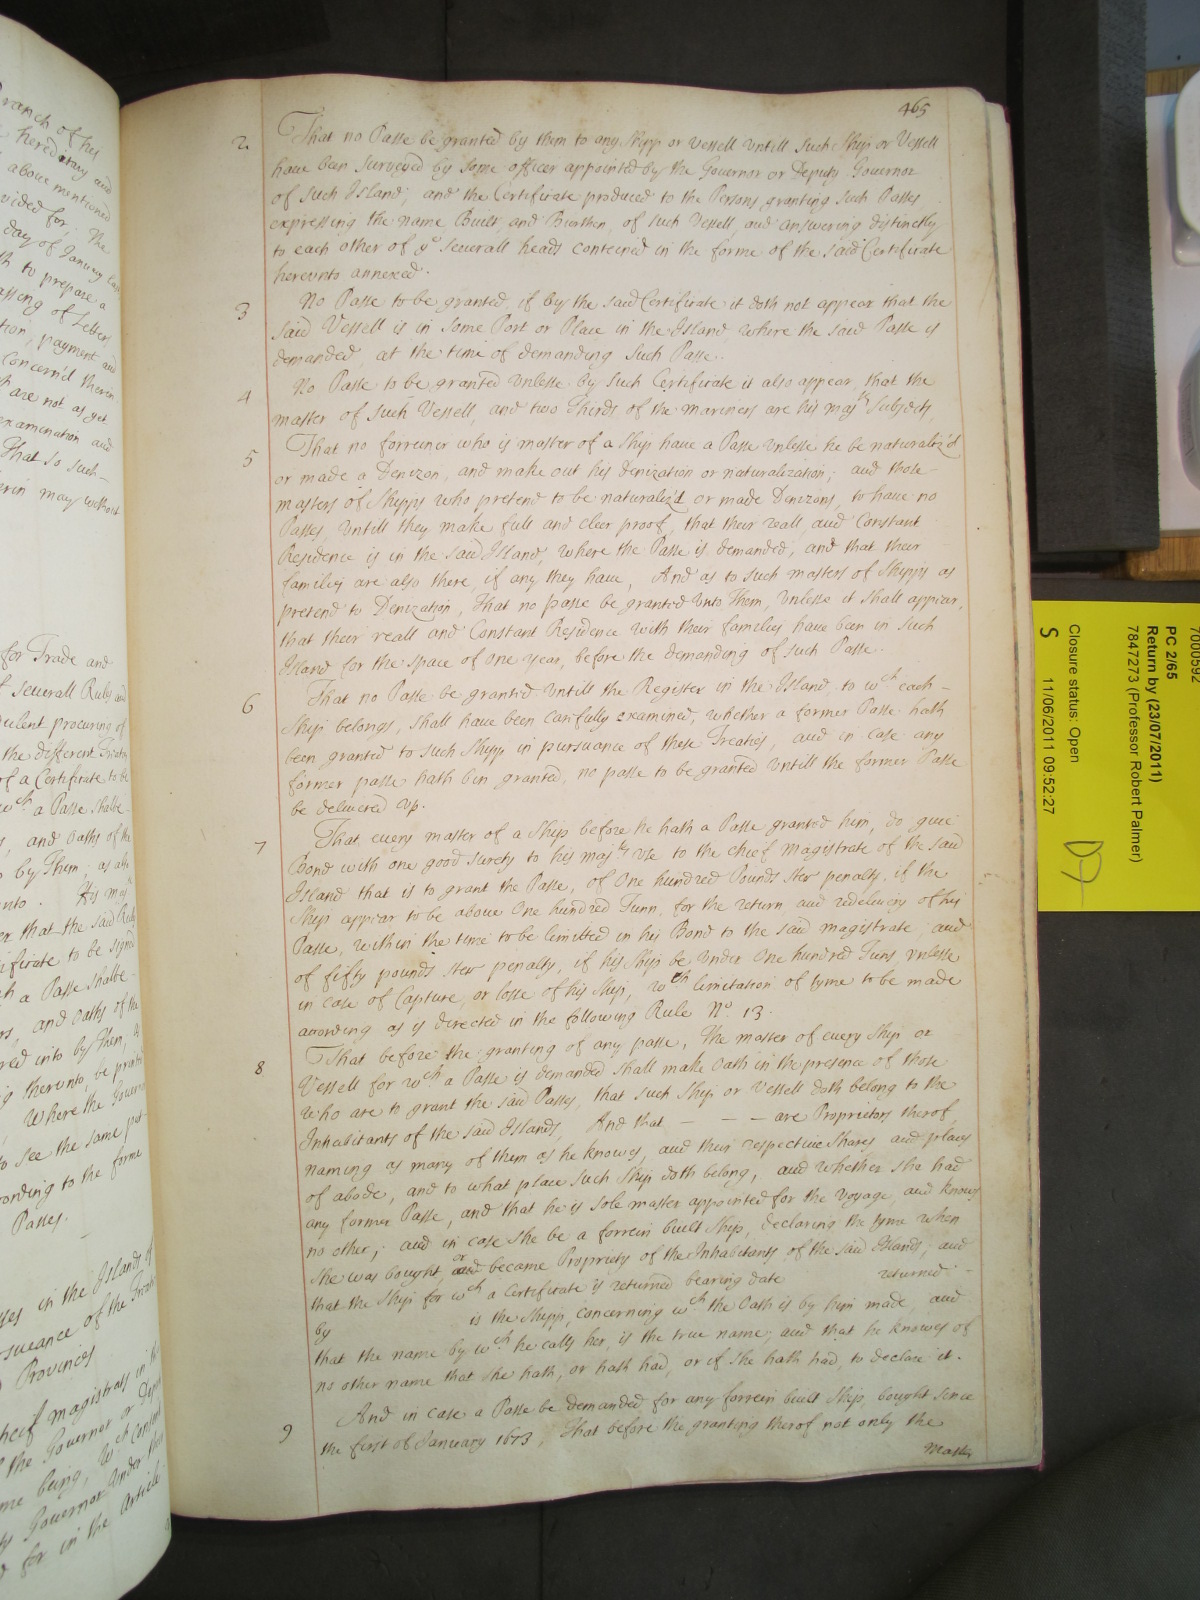 465
2. That no Passe be granted by them to any Shipp or Vessell untill such Ship or Vessell
have been surveyed by some officer appointed by the Governor or Deputy Governor
of such Island; and the Certificate produced to the Persons granting such Passes
expressing the name Built, and Burthen, of such Vessell, and answering distinctly
to each other of ye severall heads conteined in the forme of the said Certificate
hereunto annexed.
3 No Passe to be granted, if by the said Certificate it doth not appear that the
said Vessell is in some Port or Place in the Island, where the said Passe is
demanded, at the time of demanding such Passe.
4 No Passe to be granted unlesse by such Certificate it also appear, that the
master of such Vessell, and two Thirds of the mariners are his majts Subjects,
5 That no forreiner who is master of a Ship have a Passe unlesse he be naturaliz'd
or made a Denizon, and make out his denization or naturalization; and those
masters of Shipps who pretend to be naturaliz'd or made Denizons, to have no
Passes, untill they make full and cleer proof, that their reall, and Constant
Residence is in the said Island, where the Passe is demanded, and that their
families are also there, if any they have, And as to such masters of Shipps as
pretend to Denization, That no passe be granted unto Them, unlesse it shall appear,
that their reall and Constant Residence with their families have been in such
Island for the space of one year, before the demanding of such Passe.
6 That no Passe be granted untill the Register in the Island, to wch each
Ship belongs, shall have been carefully examined, whether a former Passe hath
been granted to such Shipp in pursuance of these Treaties, and in case any
former passe hath bin granted, no passe to be granted untill the former Passe
be delivered up.
7 That every master of a Ship before he hath a Passe granted him, do give
Bond with one good surety to his majts use to the chief magistrate of the said
Island that is to grant the Passe, of One hundred Pounds ster penalty, if the
Ship appear to be above One hundred Tunn, for the return and redelivery of his
Passe, within the time to be limitted in his Bond to the said magistrate, and
of fifty pounds ster penalty, if his Ship be under One hundred Tuns, unlesse
in case of Capture, or losse of his Ship, wth limitation of tyme to be made
according as is directed in the following Rule No. 13.
8 That before the granting of any passe, The master of every Ship or
Vessell for wch a Passe is demanded shall make Oath in the presence of those
who are to grant the said Passes, that such Ship or Vessell doth belong to the
Inhabitants of the said Islands, And that — — — are Proprietors therof,
naming as many of them as he knowes, and their respective Shares and places
of abode, and to what place such Ship doth belong, and whether she had
any former Passe, and that he is sole master appointed for the Voyage, and knows
no other; and in case she be a forrein built Ship, declaring the tyme when
she was bought, or and became Propriety of the Inhabitants of the said Islands; and
that the Ship for wch a Certificate is returned bearing date returned
by is the Shipp, concerning wch the Oath is by him made, and
that the name by wch he calls her, is the true name; and that he knowes of
no other name that she hath, or hath had, or if she hath had, to declare it.
9 And in case a Passe be demanded for any forrein built Ship, bought since
the first of January 1673, That before the granting therof not only the
Mastr
7000592
PC 2/65
Return by (23/07/2011)
7847273 (Professor Robert Palmer)
Closure status: Open
S 11/06/2011 09:52:27